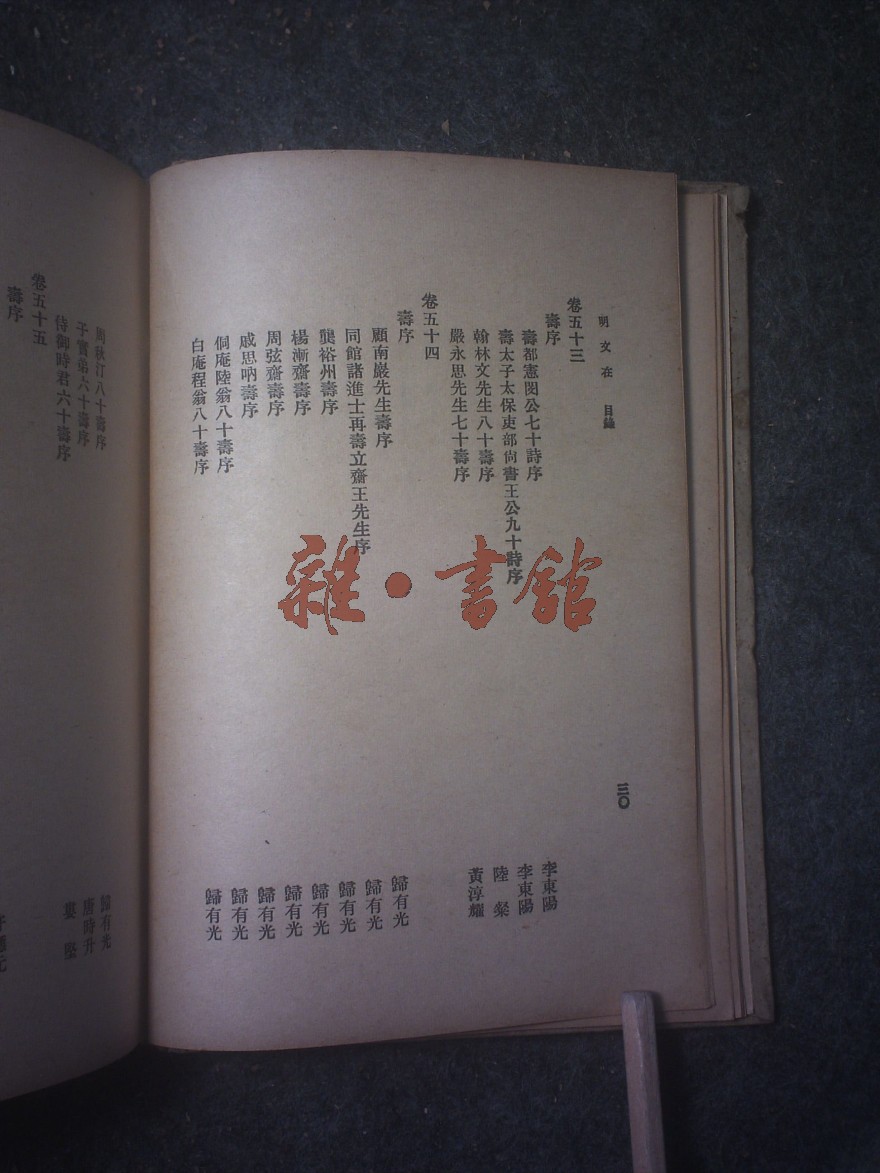 明文在 目錄
三〇
卷五十三
壽序
壽都憲閔公七十詩序 李東陽
壽太子太保吏部尙書王公九十詩序 李東陽
翰林文先生八十壽序 陸粲
嚴永思先生七十壽序 黃淳耀
卷五十四
壽序
顧南巖先生壽序 歸有光
同館諸進士再壽立齋王先生序 歸有光
龔裕州壽序 歸有光
楊漸齋壽序 歸有光
周弦齋壽序 歸有光
戚思吶壽序 歸有光
侗庵陸翁八十壽序 歸有光
白庵程翁八十壽序 歸有光
周秋汀八十壽序 歸有光
子實弟六十壽序 唐時升
侍御時君六十壽序 婁堅
卷五十五
壽序
雜·書館